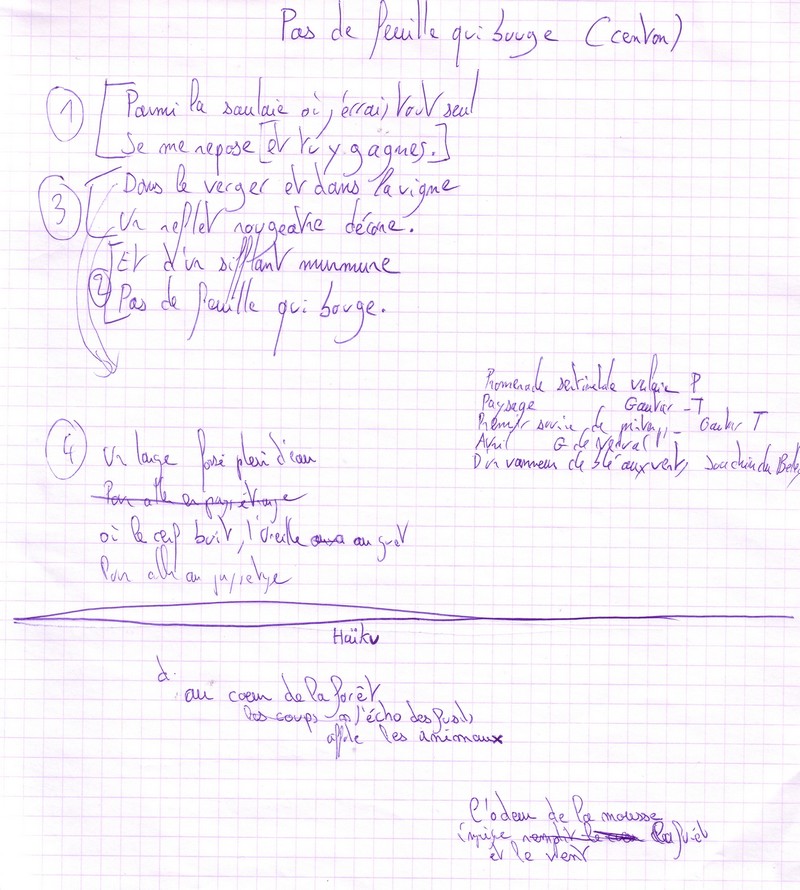 Pas de feuille qui bouge (centon)
1 Parmi la saulaie où j'errais tout seul
Je me repose [et tu y gagnes.]
3 Dans le verger et dans la vigne
Un reflet rougeatre décore.
Et d'un sifflant murmure
2 Pas de feuille qui bouge.
Promenade sentimentale P
Paysage Gautier T
Premier sourire de Gautier T
Avril G de Nerval
D'un vanneur de blé aux vents Joachim du
4 Un large fossé plein d'eau
où le cerf boit, l'oreille au guet
Pour aller au
Haïku
d.
au coeur de la forêt
les coups l'écho des fusils
les animaux
l'odeur de la mousse
la forêt
et le vent